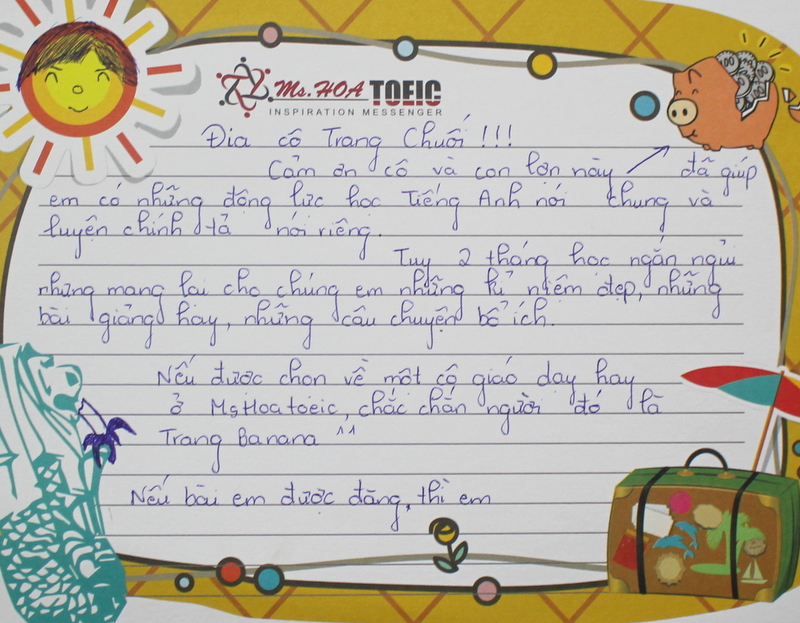 Ms. HOA TOEIC
INSPIRATION MESSENGER
Đia cô Trang Chuối !!!
Cảm ơn cô và con lợn này ↗ đã giúp
em có những động lực học Tiếng Anh nói chung và
luyện chính tả nói riêng.
Tuy 2 tháng học ngắn ngủi
nhưng mang lại cho chúng em những kỉ niệm đẹp, những
bài giảng hay, những câu chuyện bổ ích.
Nếu được chọn về một cô giáo dạy hay
ở MsHoatoeic, chắc chắn người đó là
Trang Banana ^^
Nếu bài em được đăng, thì em